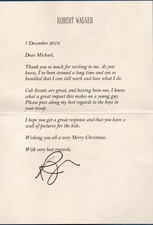 ROBERT WAGNER
7 December 2016
Dear Michael,
Thank you so much for writing to me. As you
know, I've been around a long time and am so
humbled that I can still work and love what I do.
Cub Scouts are great, and having been one, I know
what a great impact this makes on a young guy.
Please pass along my best regards to the boys in
your troop.
I hope you get a great response and that you have a
wall of pictures for the kids.
Wishing you all a very Merry Christmas.
With very best regards,